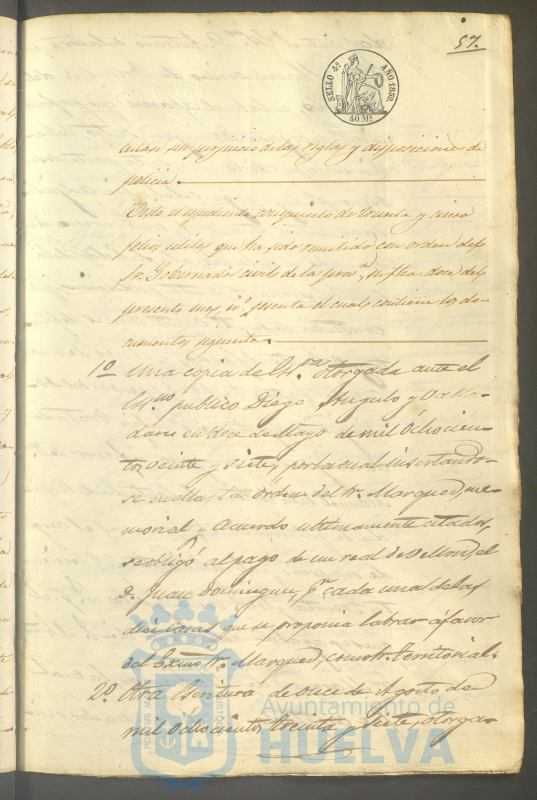 57.
SELLO 4º AÑO 1859.
40 Ms
culasi sin perjuicio de las reglas y disposiciones de
policia.
Visto el espediente compuesto de treinta y cinco
fojas utiles que ha sido remitido con orden del
Sr. Gobernador civil de la prova, su fha. doce del
presente mes, nº sesenta el cual contiene los do-
cumentos siguientes.
1º Una copia de Esra. otorgada ante el
Esno publico Diego Angulo y Valla-
dares en doce de Mayo de mil Ochocien-
tos veinte y siete, por la cual insertando-
se en ella, la orden del Sr. Marques, me-
morial y acuerdo ultimamente citados,
se obligó al pago de un real de Vellon, el
D. Juan Dominguez, pr. cada una de las
diez casas que se proponia labrar á favor
del Exmo Sr. Marques, como Sr. territorial.
2º Otra Escritura de once de Agosto de
mil Ochocientos treinta y siete, otorga-
Ayuntamiento de
HUELVA